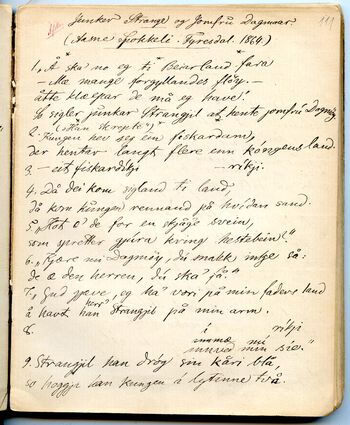 Junker Strange og Jomfru Dagmaar 119
(Aasne Tokkeli - Fyresdal. 1864)
1, Å ska no eg ti Beiarland fara
Me mange forgyllandes fløy.
åtte
so sigler junkar Strangjil at hente jomfrú Dagmøy
2. Kungen hev seg ein fiskardam,
der hentar langt flere enn kongens land.
3 - eit fiskardikji — rikji.
4. Då dei kom syland ti land,
då kom kungen rennand på hvidan sand.
5, "Hot æ de for en svein,
som spretter kring hestebein?"
6, "Kjære mi Dagmøy, du makk inkje så:
de æ den herren, du ska få."
7, "Gud gjeve, eg ha' vori på min faders land
å havt herr Strangjil på min arm.
8. i rikji
mi
min sie."
9. Strangjil han dróg sin kåri blå,
so hoggji han kungen å lytenne två.